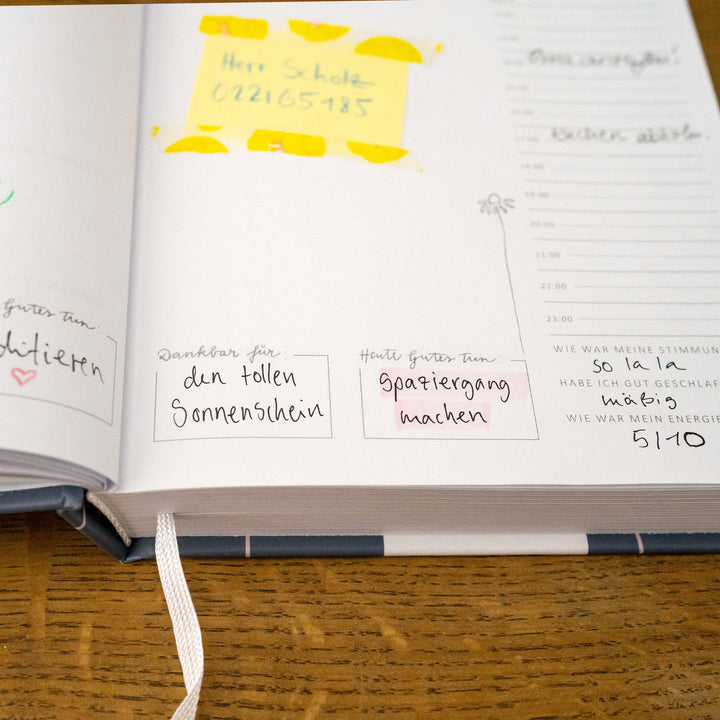 Herr Scholz
022165185
Kuchen abholen
19:00
20:00
21:00
22:00
23:00
Gutes tun:
ditieren
Dankbar für:
den tollen
Sonnenschein
Heute Gutes tun:
Spaziergang
machen
WIE WAR MEINE STIMMUN
so la la
HABE ICH GUT GESCHLAF
mäßig
WIE WAR MEIN ENERGIE
5/10